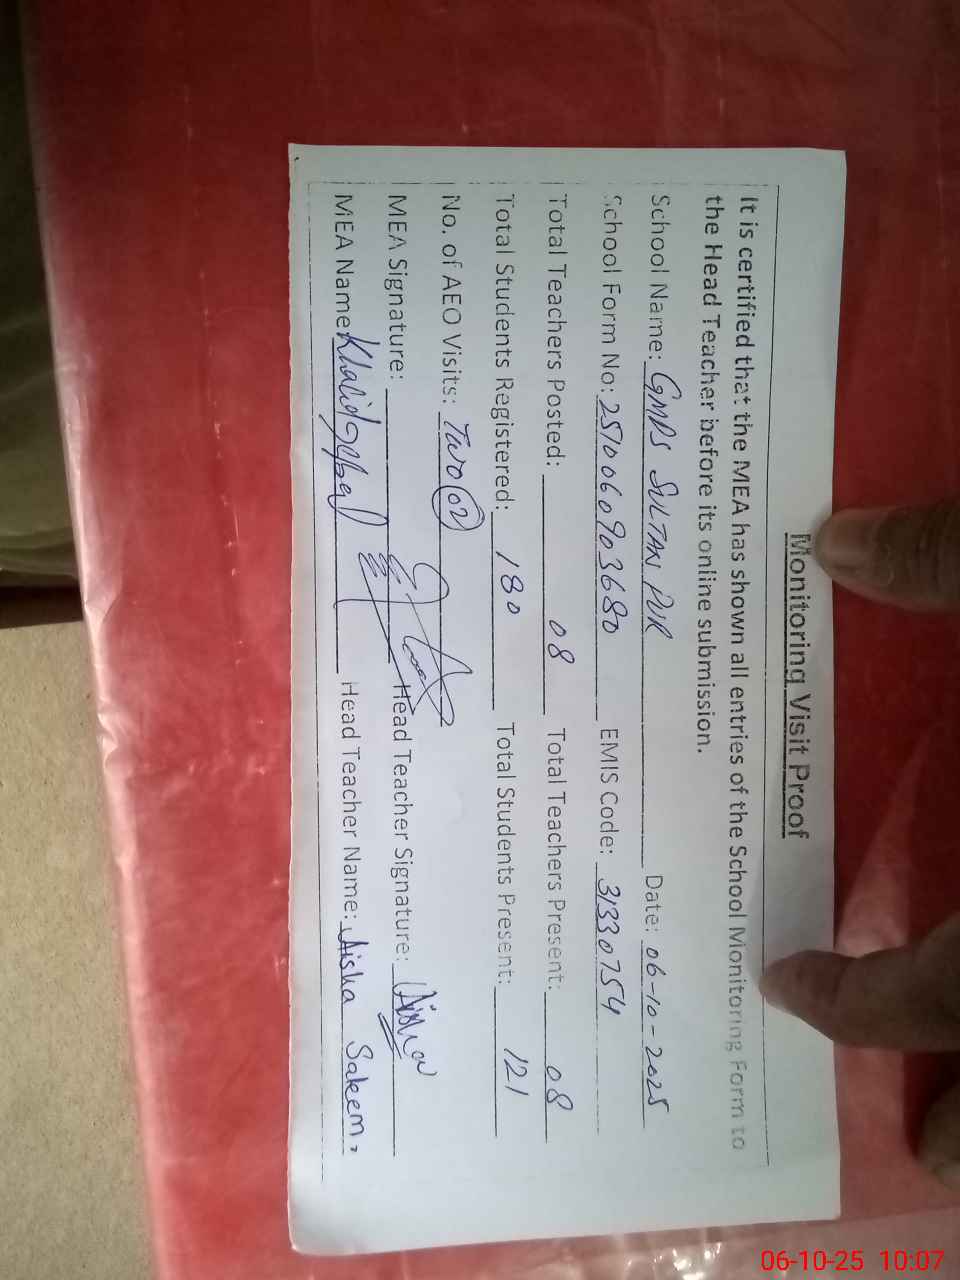 Monitoring Visit Proof
It is certified that the MEA has shown all entries of the School Monitoring Form to
the Head Teacher before its online submission.
School Name: GMPS SULTAN PUR Date: 06-10-2025
School Form No: 2510060903680 EMIS Code: 31330754
Total Teachers Posted: 08 Total Teachers Present: 08
Total Students Registered: 180 Total Students Present: 121
No. of AEO Visits: Two 02
MEA Signature: Head Teacher Signature: Aisha
MEA Name: Khalid Iqbal Head Teacher Name: Aisha Saleem.
06-10-25 10:07